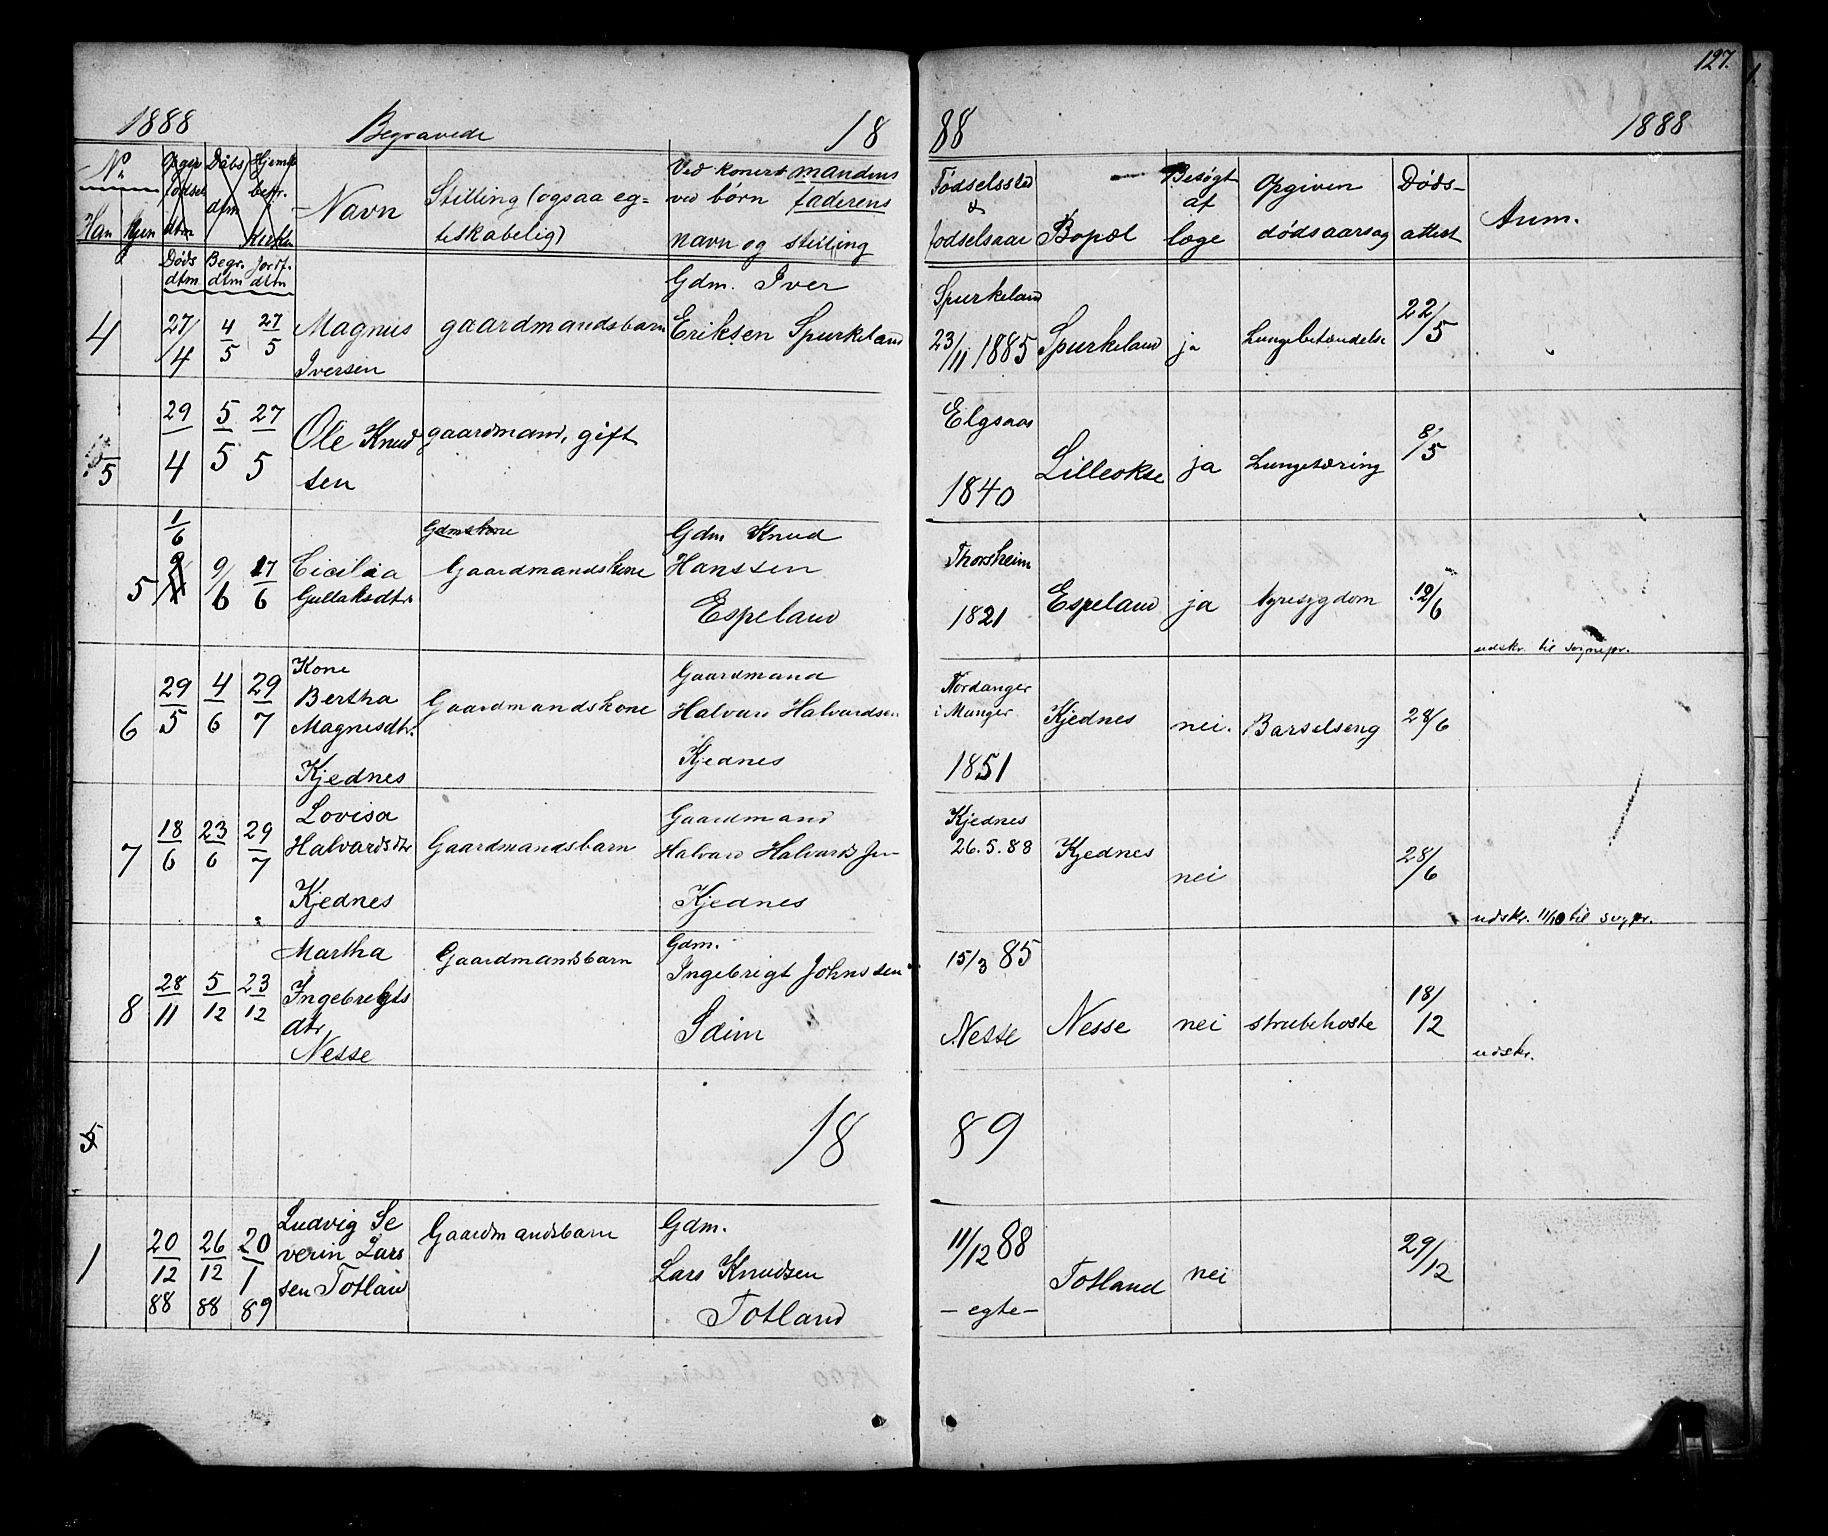 127.
1888 Begravede 18 88 1888
No Han Kjøn
Opgiv fødsel dtm
Døbs dtm
Hjemd bekr. kirken
Døds dtm
Begr. dtm
Jordf. dtm
Navn
Stilling (ogsaa eg=
teskabelig)
Ved koner mandens
ved børn faderens
navn og stilling
Fødselssted
&
fødselsaar
Bopæl
Besøgt
af
læge
Opgiven
dødsaarsag
Døds-
attest
Anm.
4
27/4
4/5
27/5
Magnus
Iversen
gaardmandsbarn
Gdm. Iver
Eriksen Spurkeland
Spurkeland
23/11 1885
Spurkeland
ja
Lungebetændelse
22/5
5
29/4
5/5
27/5
Ole Knud
sen
gaardmand, gift
Elgsaas
1840
Lilleokse
ja
Lungetæring
8/5
5
1/6
9/6
17/6
Cicilia
Gullaksdtr.
Gdmskone
Gaardmandskone
Gdm Knud
Hanssen
Espeland
Thorsheim
1821
Espeland
ja
nyresygdom
12/6
udskr. til sognepr.
6
29/5
4/6
29/7
Kone
Bertha
Magnesdtr.
Kjednes
Gaardmandskone
Gaardmand
Halvard Halvardsen
Kjednes
Nordanger
i Manger
1851
Kjednes
nei.
Barselseng
28/6
7
18/6
23/6
29/7
Lovisa
Halvardsdtr
Kjednes
Gaardmandsbarn
Gaardmand
Halvard Halvards Jen-
Kjednes
Kjednes
26.5.88
Kjednes
nei
28/6
udskr. 11/10 til sogpr.
8
28/11
5/12
23/12
Martha
Ingebregts
dtr
Nesse
Gaardmandsbarn
Gdm.
Ingebrigt Johnssen
Idem
15/3 85
Nesse
Nesse
nei
strubehoste
18/12
udskr.
5
18 89
1
20/12 88
26/12 88
20/1 89
Ludvig Se
verin Lars
sen Totland
Gaardmandsbarn
Gdm.
Lars Knudsen
Totland
11/12 88
- egte -
Totland
nei
29/12